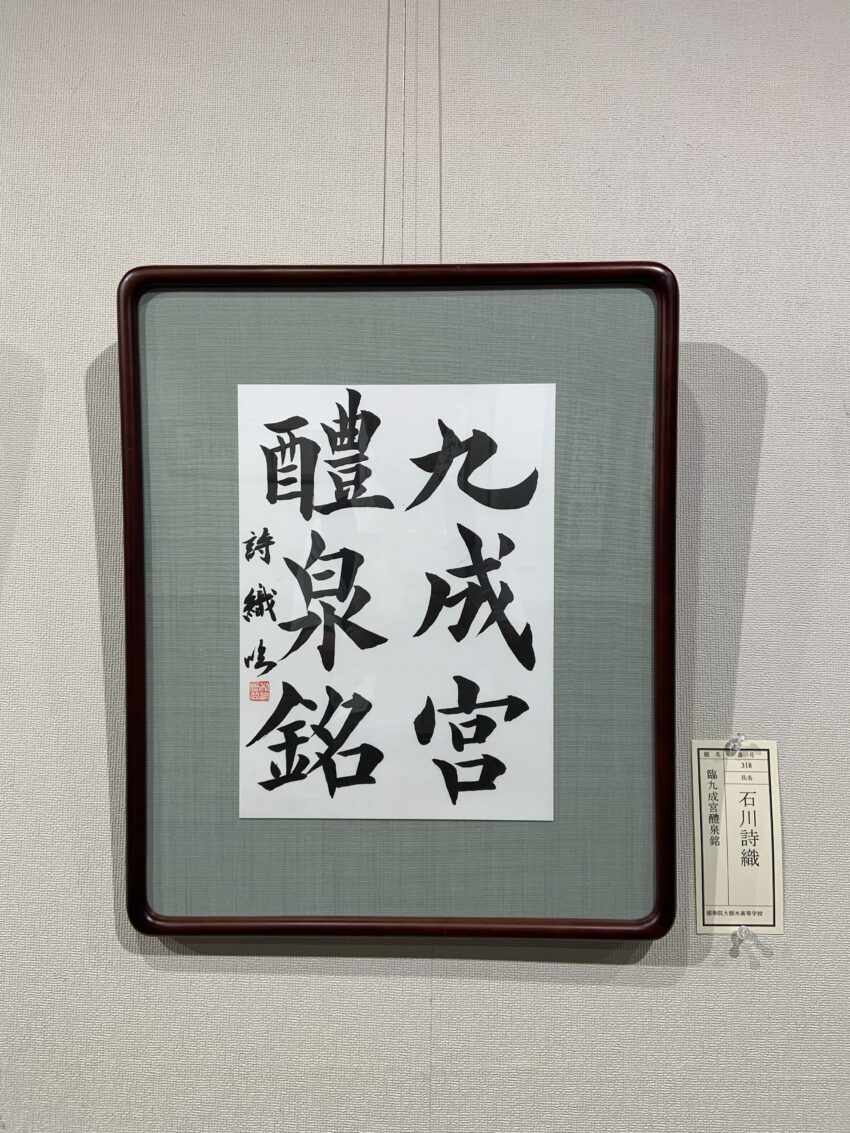 九成宮
醴泉銘
詩織臨
番号
318
氏名
石川詩織
題名
臨九成宮醴泉銘
國學院大栃木高等学校